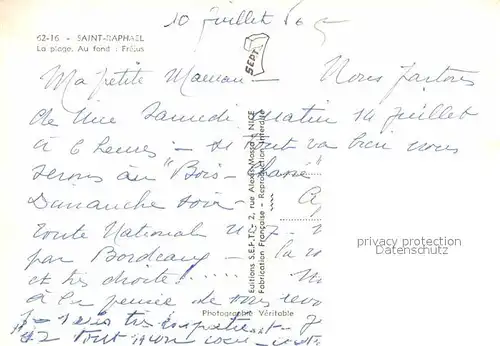 10 juillet
62-16 - SAINT-RAPHAEL
La plage. Au fond : Fréjus
SEPT
Ma petite Maman - Nous partons
de Nice Samedi matin 14 juillet
à 6 heures - si tout va bien nous
serons au "Bois-
Dimanche soir -
route Nationale
par Bordeaux - la
et très droite ! .....
à la pensée de vous
très impatient -
tout mon
Editions S.E.P.T. - 2, rue Alexis-Mossa - NICE
Fabrication Française - Reproduction Interdite
privacy protection
Datenschutz
Photographie Véritable